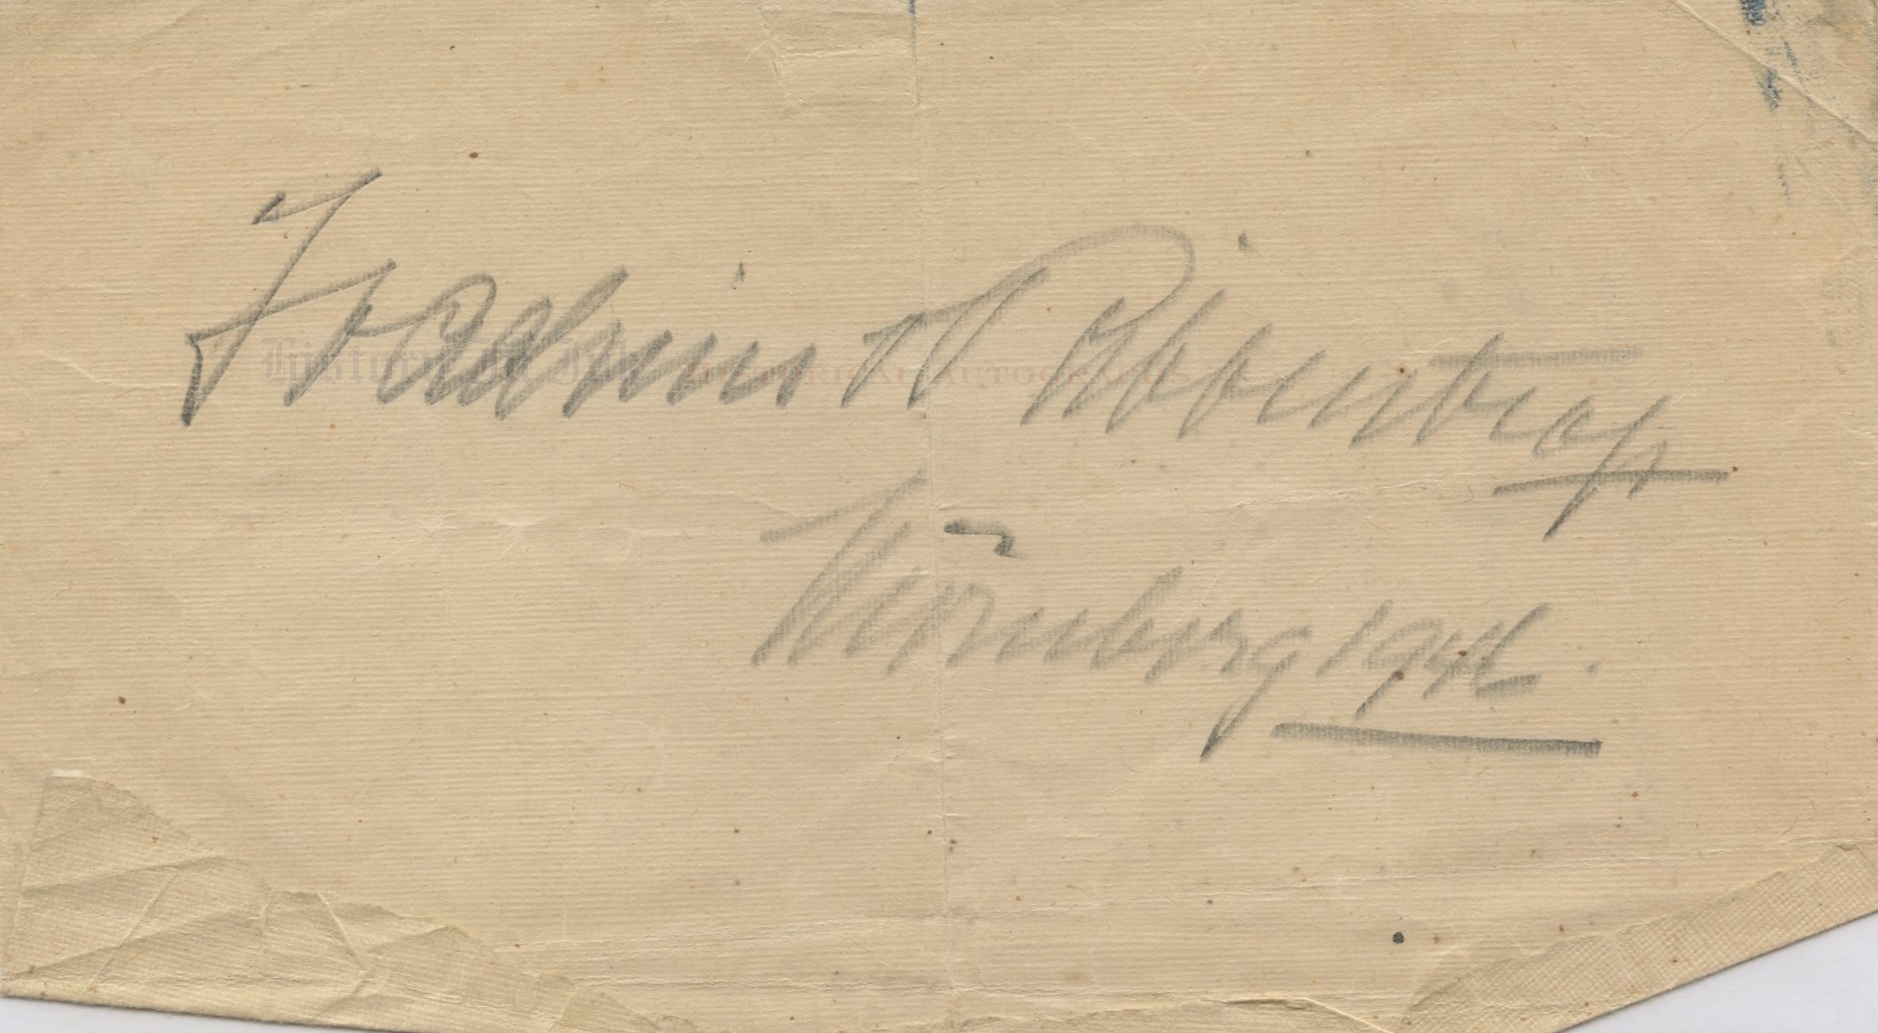 Joachim v Ribbentrop
Nürnberg 1946.
History In Ink HISTORICAL AUTOGRAPHS